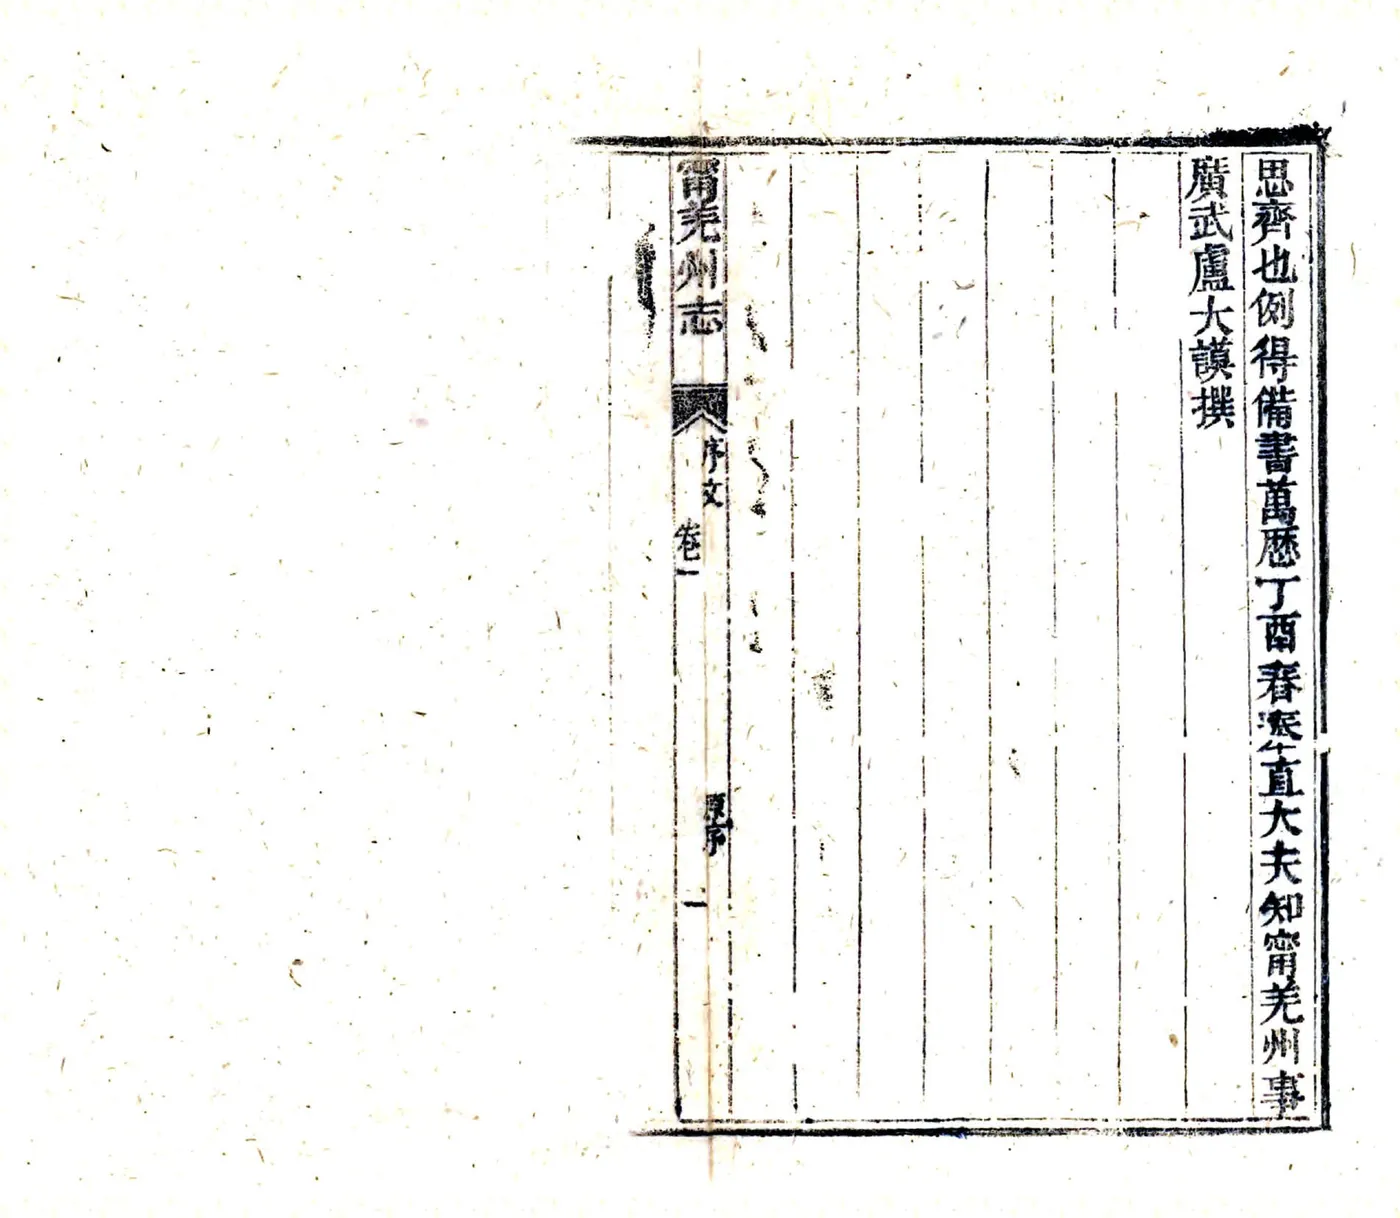 思齊也例得備書萬歷丁酉春奉直大夫知甯羌州事
廣武盧大謨撰
甯羌州志
序文
卷一
原序
一